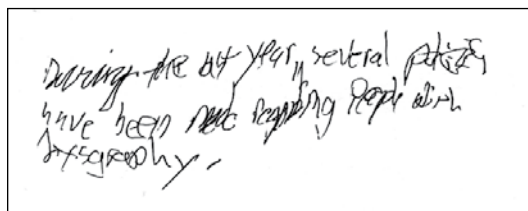 During the last year, several policies
have been made regarding People with
dysgraphy.